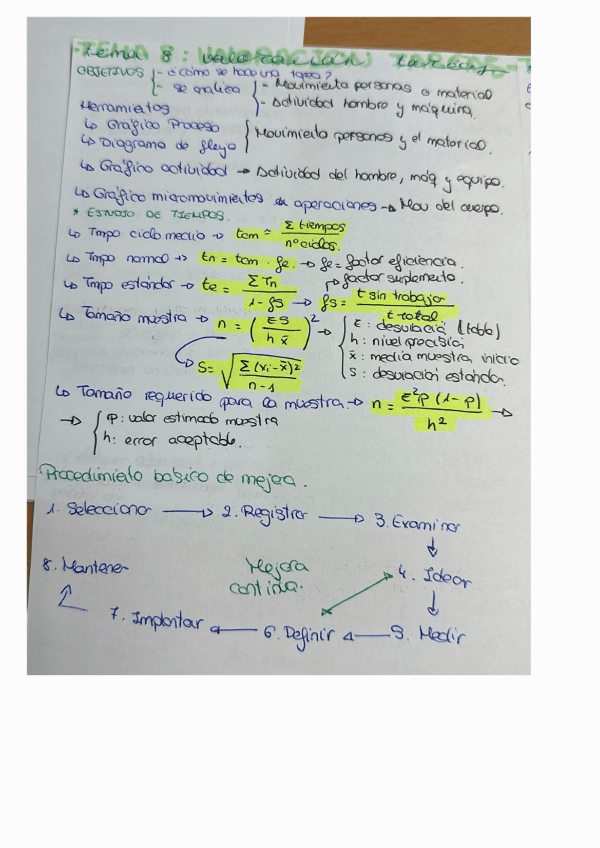 Tema 8: Valoración tareas
OBJETIVOS { - ¿cómo se hace una tarea?
- se analiza { - Movimiento personas o material
- Actividad hombre y máquina.
Herramientas
↳ Gráfico Proceso
↳ Diagrama de flujo } Movimiento personas y el material.
↳ Gráfico actividad → Actividad del hombre, máq y equipo.
↳ Gráfico micromovimientos operaciones → Mov del cuerpo.
* ESTUDIO DE TIEMPOS.
↳ Tmpo ciclo medio → tcm = Σ tiempos / nº ciclos.
↳ Tmpo normal → tn = tcm · fe. → fe = factor eficiencia.
↳ Tmpo estándar → te = Σ Tn / 1 - fs → fs = t sin trabajar / t total.
↳ factor suplemento.
↳ Tamaño muestra → n = (ε s / h x̄)² → { ε : desviació (tabla)
h : nivel precisió
x̄ : media muestra inicio
S : desviación estándar.
S = √ Σ (xi - x̄)² / n - 1
↳ Tamaño requerido para la muestra → n = ε² p (1 - p) / h² →
→ { p: valor estimado muestra
h: error aceptable.
Procedimiento básico de mejora.
1. Seleccionar → 2. Registrar → 3. Examinar
↓
4. Idear
↓
5. Medir
← 6. Definir
← 7. Implantar
8. Mantener
Mejora
continua.